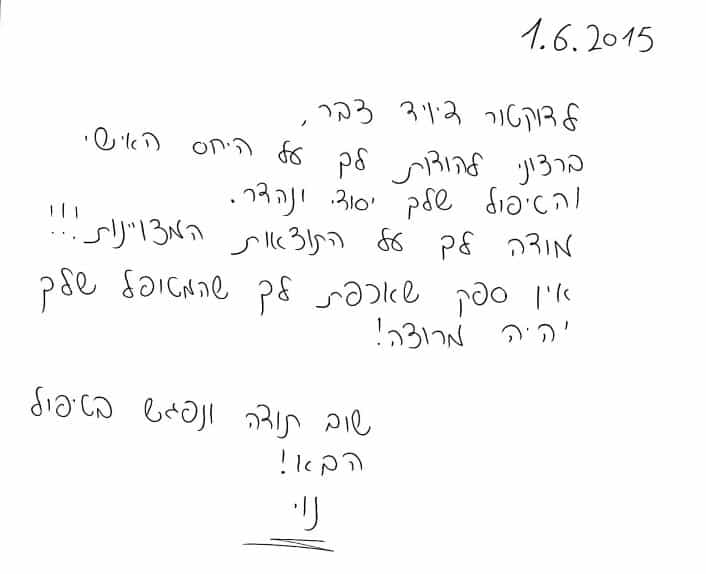 1.6.2015
לדוקטור דיויד צבר,
ברצוני להודות לך על היחס האישי
והטיפול שלך יסודי ונהדר.
מודה לך על התוצאות המצויינות!!!
אין ספק שאכפת לך שהמטופל שלך
יהיה מרוצה!
שוב תודה ונפגש בטיפול
הבא!
נוי